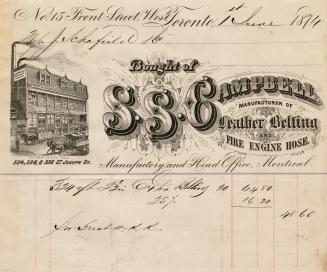 No. 15 Front Street, West,
Toronto, 1st June 1874
J. Schofield
Bought of
S.S. Campbell
MANUFACTURER OF
Leather Belting
AND
FIRE ENGINE HOSE.
594, 596, & 598 St. Joseph St.
Manufactory and Head Office, Montreal.
324 ft Belting 20 64 80
25% 16 20
48 60